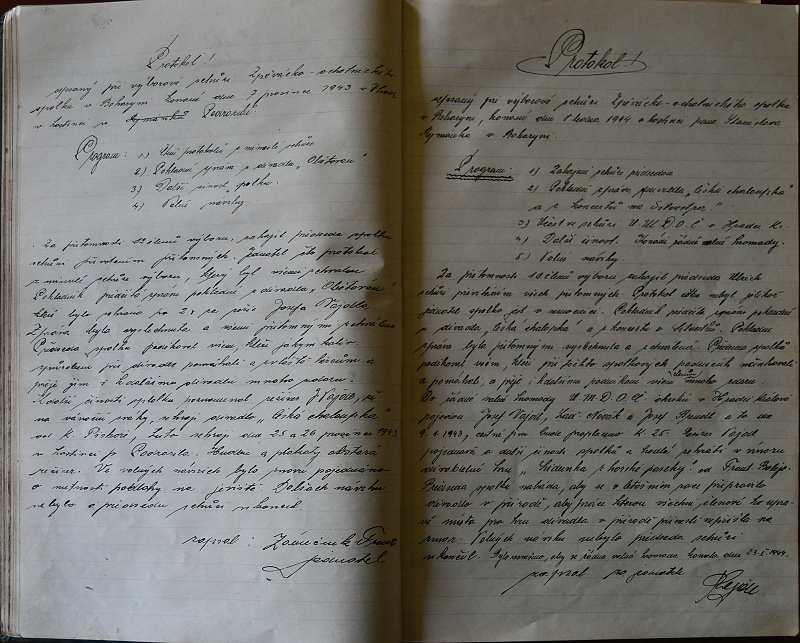 Protokol!
sepsaný při výborové schůzi Zpěvácko-ochotnického
spolku v Boharyni konané dne 7 prosince 1943 v 8 hod
v hostinci p. Rejmanka Podrazila
Program: 1) čtení protokolu z minulé schůze
2) Pokladní zpráva z divadla „Obětovaní"
3) Další činnost spolku.
4) Volné návrhy.
Za přítomnosti 12 členů výboru, zahájil předseda spolku
schůzi přivítáním přítomných. Jednatel čte protokol
z minulé schůze výboru, který byl všemi schválen
Pokladník přednesl zprávu pokladní z divadla „Obětovaní"
které bylo sehráno po 2x za režie Josefa Vojdla.
Zpráva byla vyslechnuta a všemi přítomnými schválena
Předseda spolku poděkoval všem, kteří jakýmkoliv
způsobem při divadle pomáhali a zvláště hercům a
přeje jim k dalšímu divadlu mnoho zdaru.
K další činnosti spolku poznamenal režisér J. Vojdl, že
na vánoční svátky, sehraje divadlo „Česká chaloupka"
od K. Piskoř, které sehraje dne 25 a 26 prosince 1943
v hostinci p. Podrazila. Hudbu a plakáty obstará
režisér. Ve volných návrzích bylo znovu pojednáno
o nutnosti podlahy na jeviště. Dalších návrhů
nebylo a předsedou schůze skončena
zapsal: Franc
jednatel
Protokol!
sepsaný při výborové schůzi Zpěvácko-ochotnického spolku
v Boharyni, konané dne 8 ledna 1944 v hostinci pana Stanislava
Rejmanka v Boharyni.
Program: 1) Zahájení schůze předsedou
2) Pokladní zpráva z divadla „Česká chaloupka"
a z koncertu na Silvestra."
3) Účast ve schůzi U.M.D.O.Č v Hradci K.
4) Další činnost. Konání řádné valné hromady.
5) Volné návrhy
Za přítomnosti 10 členů výboru zahájil předseda Ulrich
schůzi přivítáním všech přítomných. Protokol čten nebyl, jelikož
jednatel spolku jest v nemocnici. Pokladník přednesl zprávu pokladní
z divadla „Česká chaloupka" a z koncertu o Silvestru. Pokladní
zpráva byla přítomnými vyslechnuta a schválena. Předseda spolku
poděkoval všem, kteří při těchto spolkových podnicích účinkovali
a pomáhali, a přeje i k dalšímu podnikání všem členům mnoho zdaru.
Do řádné valné hromady U.M.D.O.Č okrsku v Hradci Králové
pojedou Josef Vojdl, Novák a Josef a to dne
9.1.1943, cestné jim bude proplaceno K 25. Režisér Vojdl
pojednává o další činnosti spolku a hodlá sehráti v únoru
divadelní hru, „Sidunka z horské paseky" od
Předseda spolku nabádá, aby se v letošním roce připravilo
divadlo v přírodě, aby práce kterou všichni členové ke úpra-
vě místa pro hru divadla v přírodě přinesli nepřišla na
zmar. Volných návrhů nebylo předseda schůzi
ukončil. aby se řádná valná hromada konala dne 23.I.1944.
zapsal za jednatele